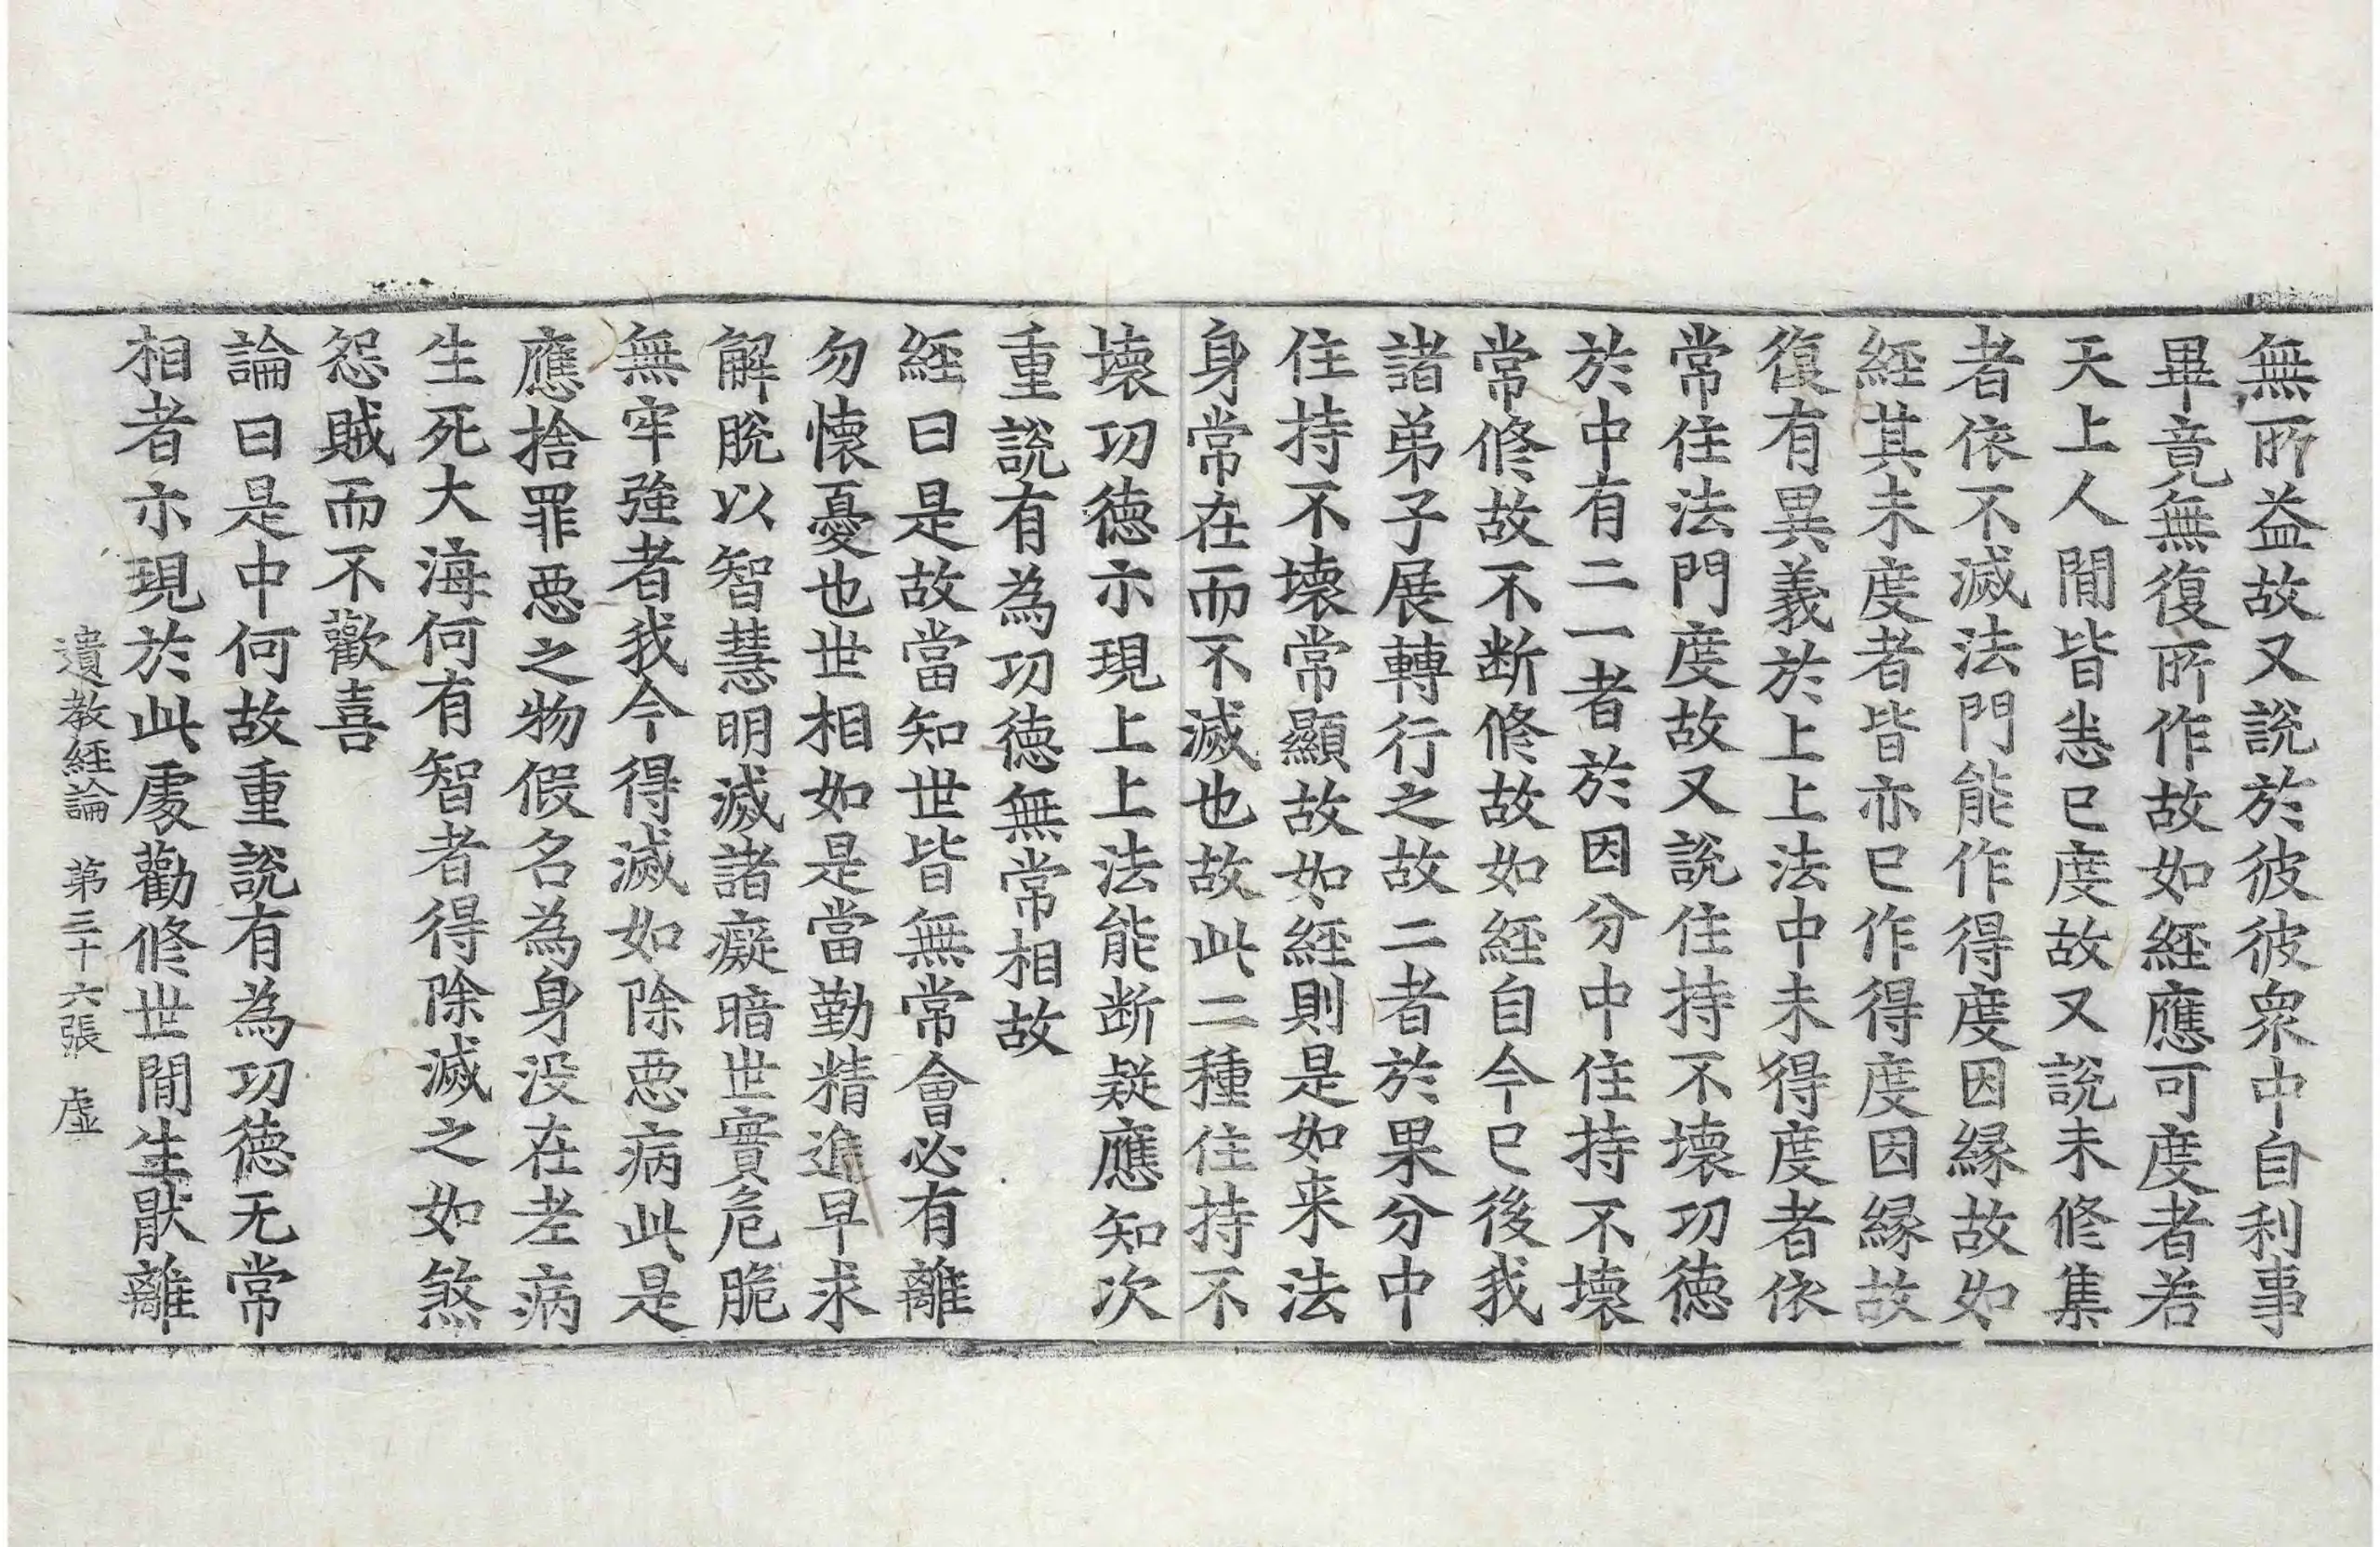 無所益故又說於彼彼衆中自利事
畢竟無復所作故如經應可度者若
天上人閒皆悉已度故又說未修集
者依不滅法門能作得度因縁故如
經其未度者皆亦已作得度因縁故
復有異義於上上法中未得度者依
常住法門度故又說住持不壞功德
於中有二一者於因分中住持不壞
常修故不断修故如經自今已後我
諸弟子展轉行之故二者於果分中
住持不壞常顯故如經則是如来法
身常在而不滅也故此二種住持不
壞功德示現上上法能断疑應知次
重說有為功德無常相故
經曰是故當知世皆無常會必有離
勿懷憂也世相如是當勤精進早求
解脫以智慧明滅諸癡暗世實危脆
無牢強者我今得滅如除惡病此是
應捨罪惡之物假名為身没在老病
生死大海何有智者得除滅之如煞
怨賊而不歡喜
論曰是中何故重說有為功德无常
相者示現於此處勸修世閒生猒離
遺教經論　第三十六張　虛